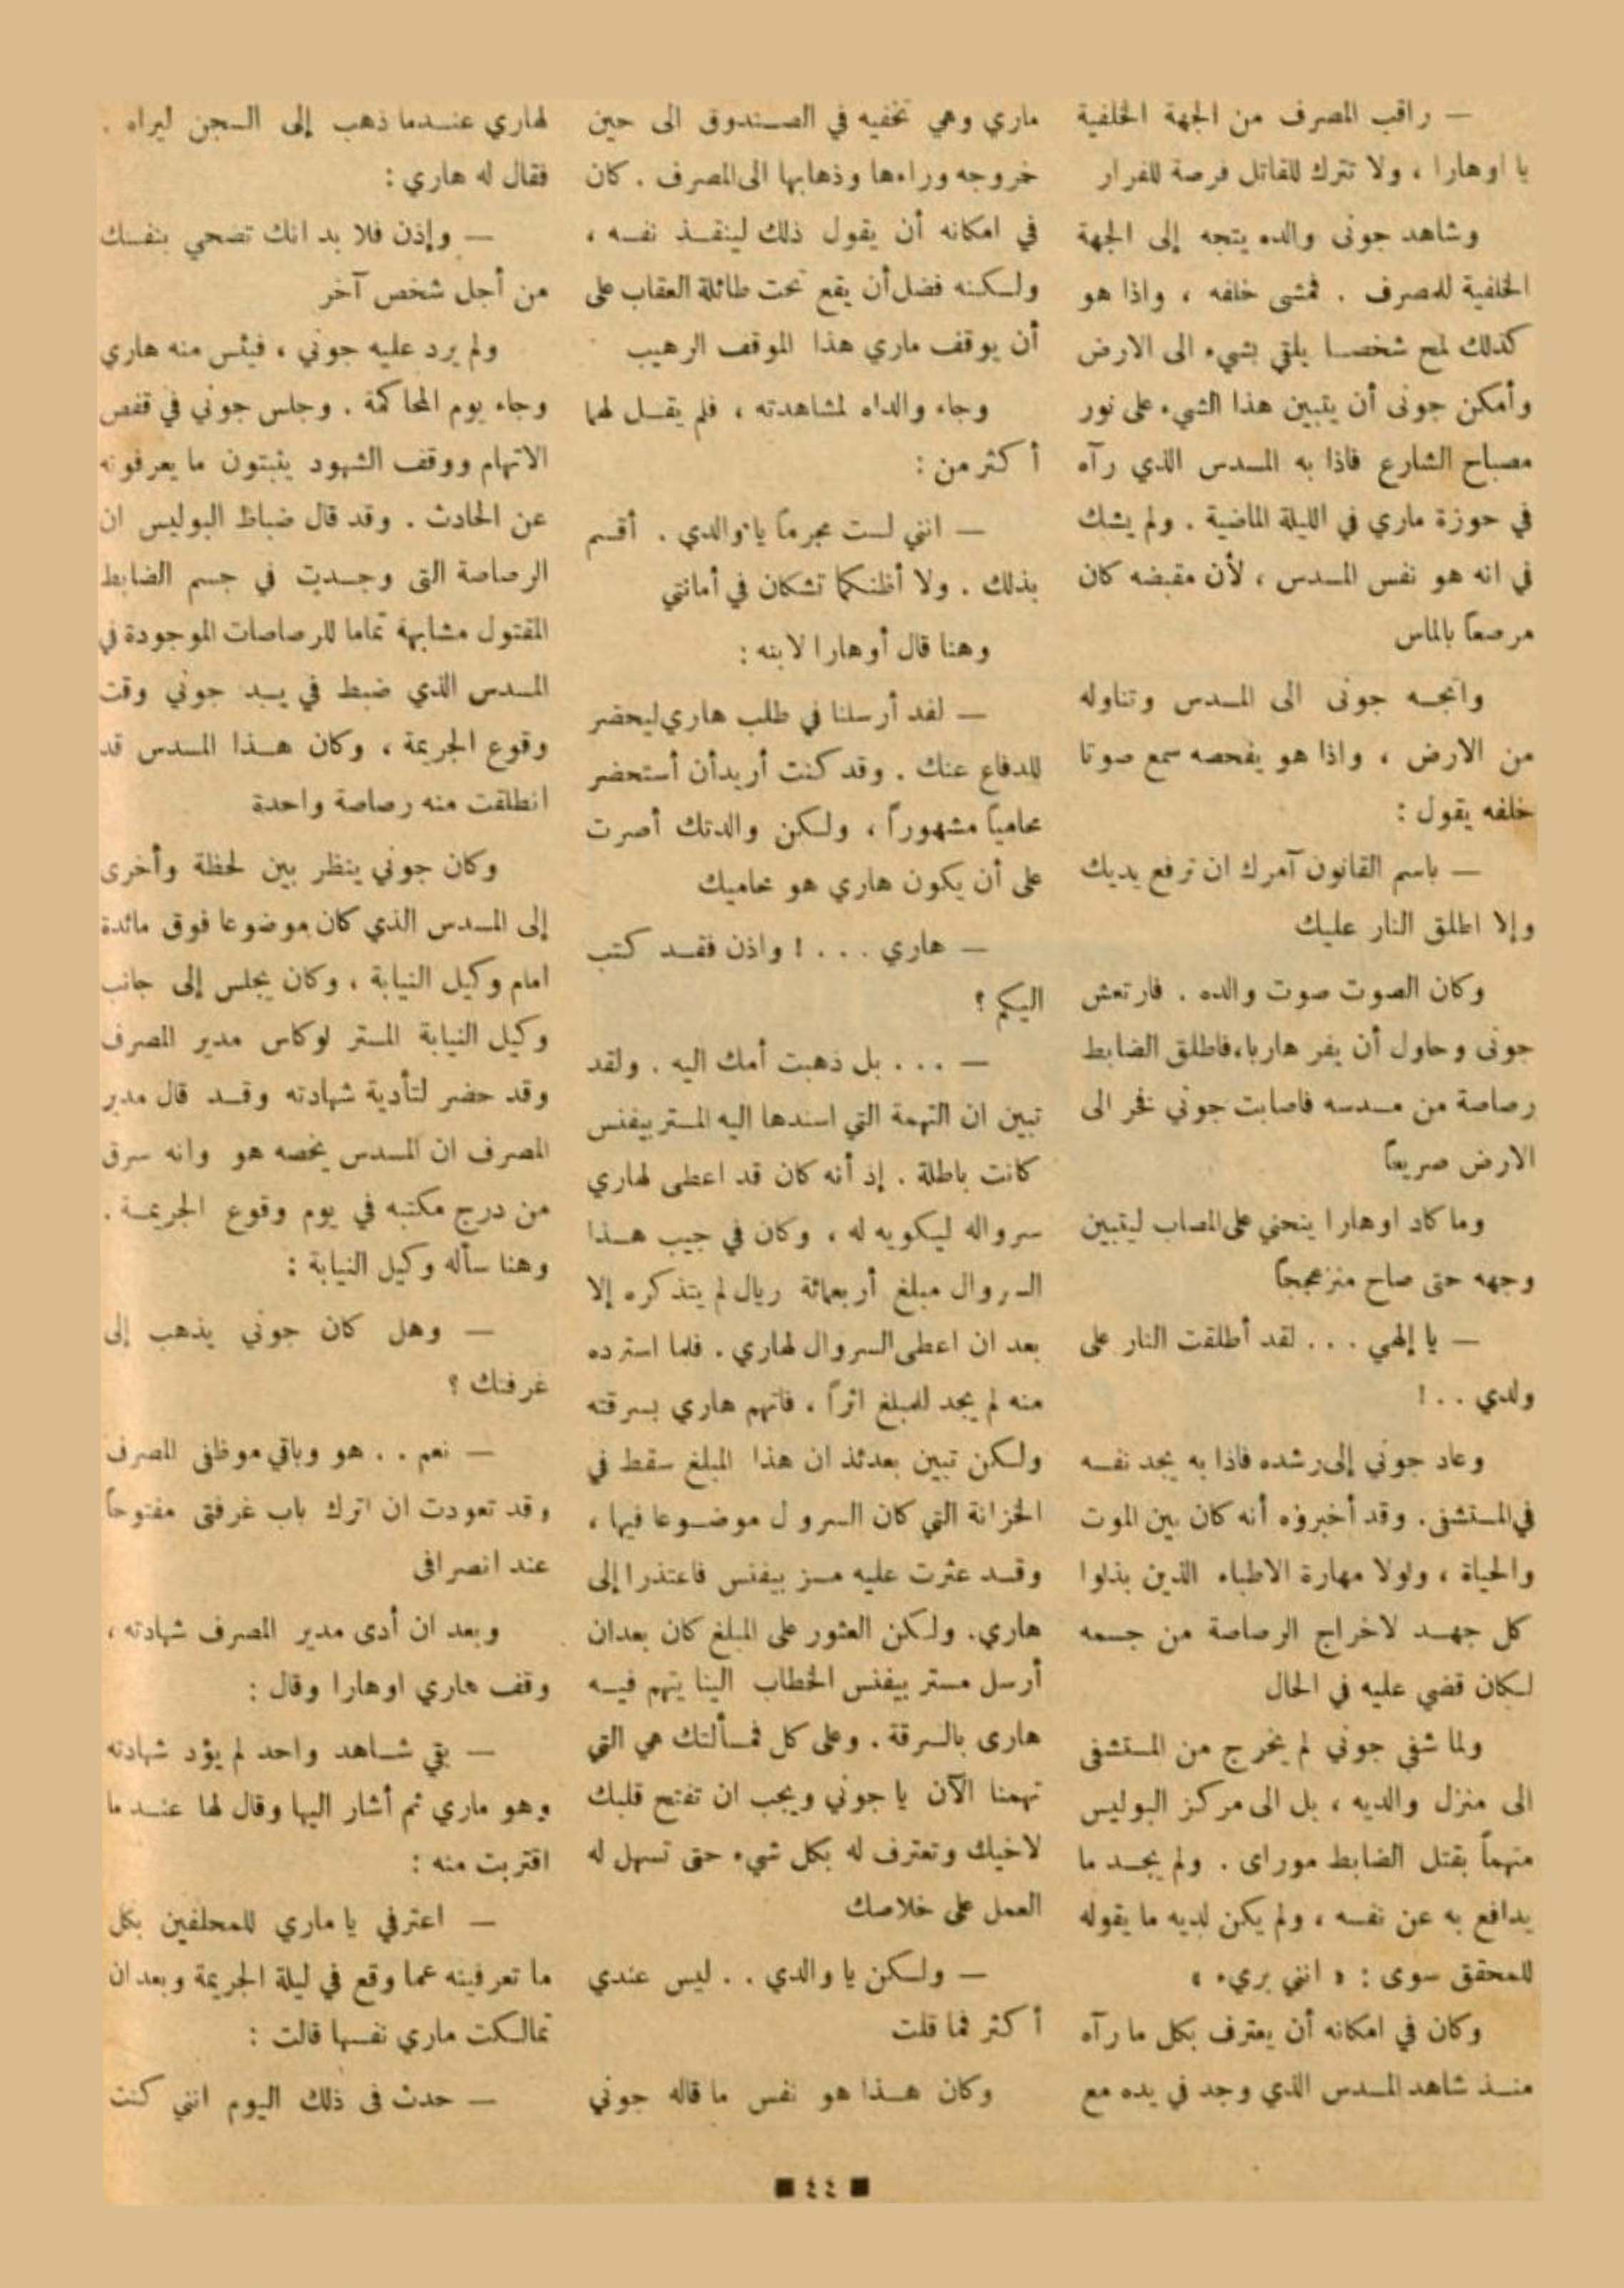 — راقب المصرف من الجهة الخلفية
يا اوهارا ، ولا تترك للقاتل فرصة للفرار
وشاهد جونى والده يتجه إلى الجهة
الخلفية للمصرف . فمشى خلفه ، واذا هو
كذلك لمح شخصا يلقى بشيء الى الارض
وأمكن جونى أن يتبين هذا الشيء على نور
مصباح الشارع فاذا به المسدس الذي رآه
في حوزة ماري في الليلة الماضية . ولم يشك
في انه هو نفس المسدس ، لأن مقبضه كان
مرصعاً بالماس
واتجه جونى الى المسدس وتناوله
من الارض ، واذا هو يفحصه سمع صوتا
خلفه يقول :
— باسم القانون آمرك ان ترفع يديك
وإلا اطلق النار عليك
وكان الصوت صوت والده . فارتعش
جونى وحاول أن يفر هاربا، فاطلق الضابط
رصاصة من مسدسه فاصابت جوني فخر الى
الارض صريعاً
وما كاد اوهارا ينحني على المصاب ليتبين
وجهه حتى صاح منزعجاً
— يا إلهي . . . لقد أطلقت النار على
ولدي . . !
وعاد جوني إلى رشده فاذا به يجد نفسه
في المستشفى . وقد أخبروه أنه كان بين الموت
والحياة ، ولولا مهارة الاطباء الذين بذلوا
كل جهد لاخراج الرصاصة من جسمه
لكان قضي عليه في الحال
ولما شفي جوني لم يخرج من المستشفى
الى منزل والديه ، بل الى مركز البوليس
متهماً بقتل الضابط موراى . ولم يجد ما
يدافع به عن نفسه ، ولم يكن لديه ما يقوله
للمحقق سوى : « انني بريء »
وكان في امكانه أن يعترف بكل ما رآه
منذ شاهد المسدس الذي وجد في يده مع
ماري وهي تخفيه في الصندوق الى حين
خروجه وراءها وذهابها الى المصرف . كان
في امكانه أن يقول ذلك لينقذ نفسه ،
ولكنه فضل أن يقع تحت طائلة العقاب على
أن يوقف ماري هذا الموقف الرهيب
وجاء والداه لمشاهدته ، فلم يقل لهما
أكثر من :
— انني لست مجرماً يا والدي . أقسم
بذلك . ولا أظنكما تشكان في أمانتي
وهنا قال أوهارا لابنه :
— لقد أرسلنا في طلب هاري ليحضر
للدفاع عنك . وقد كنت أريد أن أستحضر
محامياً مشهوراً ، ولكن والدتك أصرت
على أن يكون هاري هو محاميك
— هاري . . . ! واذن فقد كتب
اليكم ؟
— . . . بل ذهبت أمك اليه . ولقد
تبين ان التهمة التي اسندها اليه المستر بيفنس
كانت باطلة . إذ أنه كان قد اعطى لهاري
سرواله ليكويه له ، وكان في جيب هذا
السروال مبلغ أربعمائة ريال لم يتذكره إلا
بعد ان اعطى السروال لهاري . فلما استرده
منه لم يجد للمبلغ اثراً ، فاتهم هاري بسرقته
ولكن تبين بعدئذ ان هذا المبلغ سقط في
الخزانة التي كان السرو ل موضوعا فيها ،
وقد عثرت عليه مسز بيفنس فاعتذرا إلى
هاري . ولكن العثور على المبلغ كان بعد ان
أرسل مستر بيفنس الخطاب الينا يتهم فيه
هارى بالسرقة . وعلى كل فمسألتك هي التي
تهمنا الآن يا جوني ويجب ان تفتح قلبك
لاخيك وتعترف له بكل شيء حتى تسهل له
العمل على خلاصك
— ولكن يا والدي . . ليس عندي
أكثر مما قلت
وكان هذا هو نفس ما قاله جوني
لهاري عندما ذهب إلى السجن ليراه .
فقال له هاري :
— وإذن فلا بد انك تضحي بنفسك
من أجل شخص آخر
ولم يرد عليه جوني ، فيئس منه هاري
وجاء يوم المحاكمة . وجلس جوني في قفص
الاتهام ووقف الشهود يثبتون ما يعرفونه
عن الحادث . وقد قال ضباط البوليس ان
الرصاصة التى وجدت في جسم الضابط
المقتول مشابهة تماما للرصاصات الموجودة في
المسدس الذي ضبط في يد جوني وقت
وقوع الجريمة ، وكان هذا المسدس قد
انطلقت منه رصاصة واحدة
وكان جوني ينظر بين لحظة وأخرى
إلى المسدس الذي كان موضوعا فوق مائدة
امام وكيل النيابة ، وكان يجلس إلى جانب
وكيل النيابة المستر لوكاس مدير المصرف
وقد حضر لتأدية شهادته وقد قال مدير
المصرف ان المسدس يخصه هو وانه سرق
من درج مكتبه في يوم وقوع الجريمة .
وهنا سأله وكيل النيابة :
— وهل كان جوني يذهب إلى
غرفتك ؟
— نعم . . هو وباقي موظفى المصرف
وقد تعودت ان اترك باب غرفتى مفتوحاً
عند انصرافى
وبعد ان أدى مدير المصرف شهادته ،
وقف هاري اوهارا وقال :
— بقي شاهد واحد لم يؤد شهادته
وهو ماري ثم أشار اليها وقال لها عندما
اقتربت منه :
— اعترفي يا ماري للمحلفين بكل
ما تعرفينه عما وقع في ليلة الجريمة وبعد ان
تمالكت ماري نفسها قالت :
— حدث فى ذلك اليوم انني كنت
■ ٤٤ ■